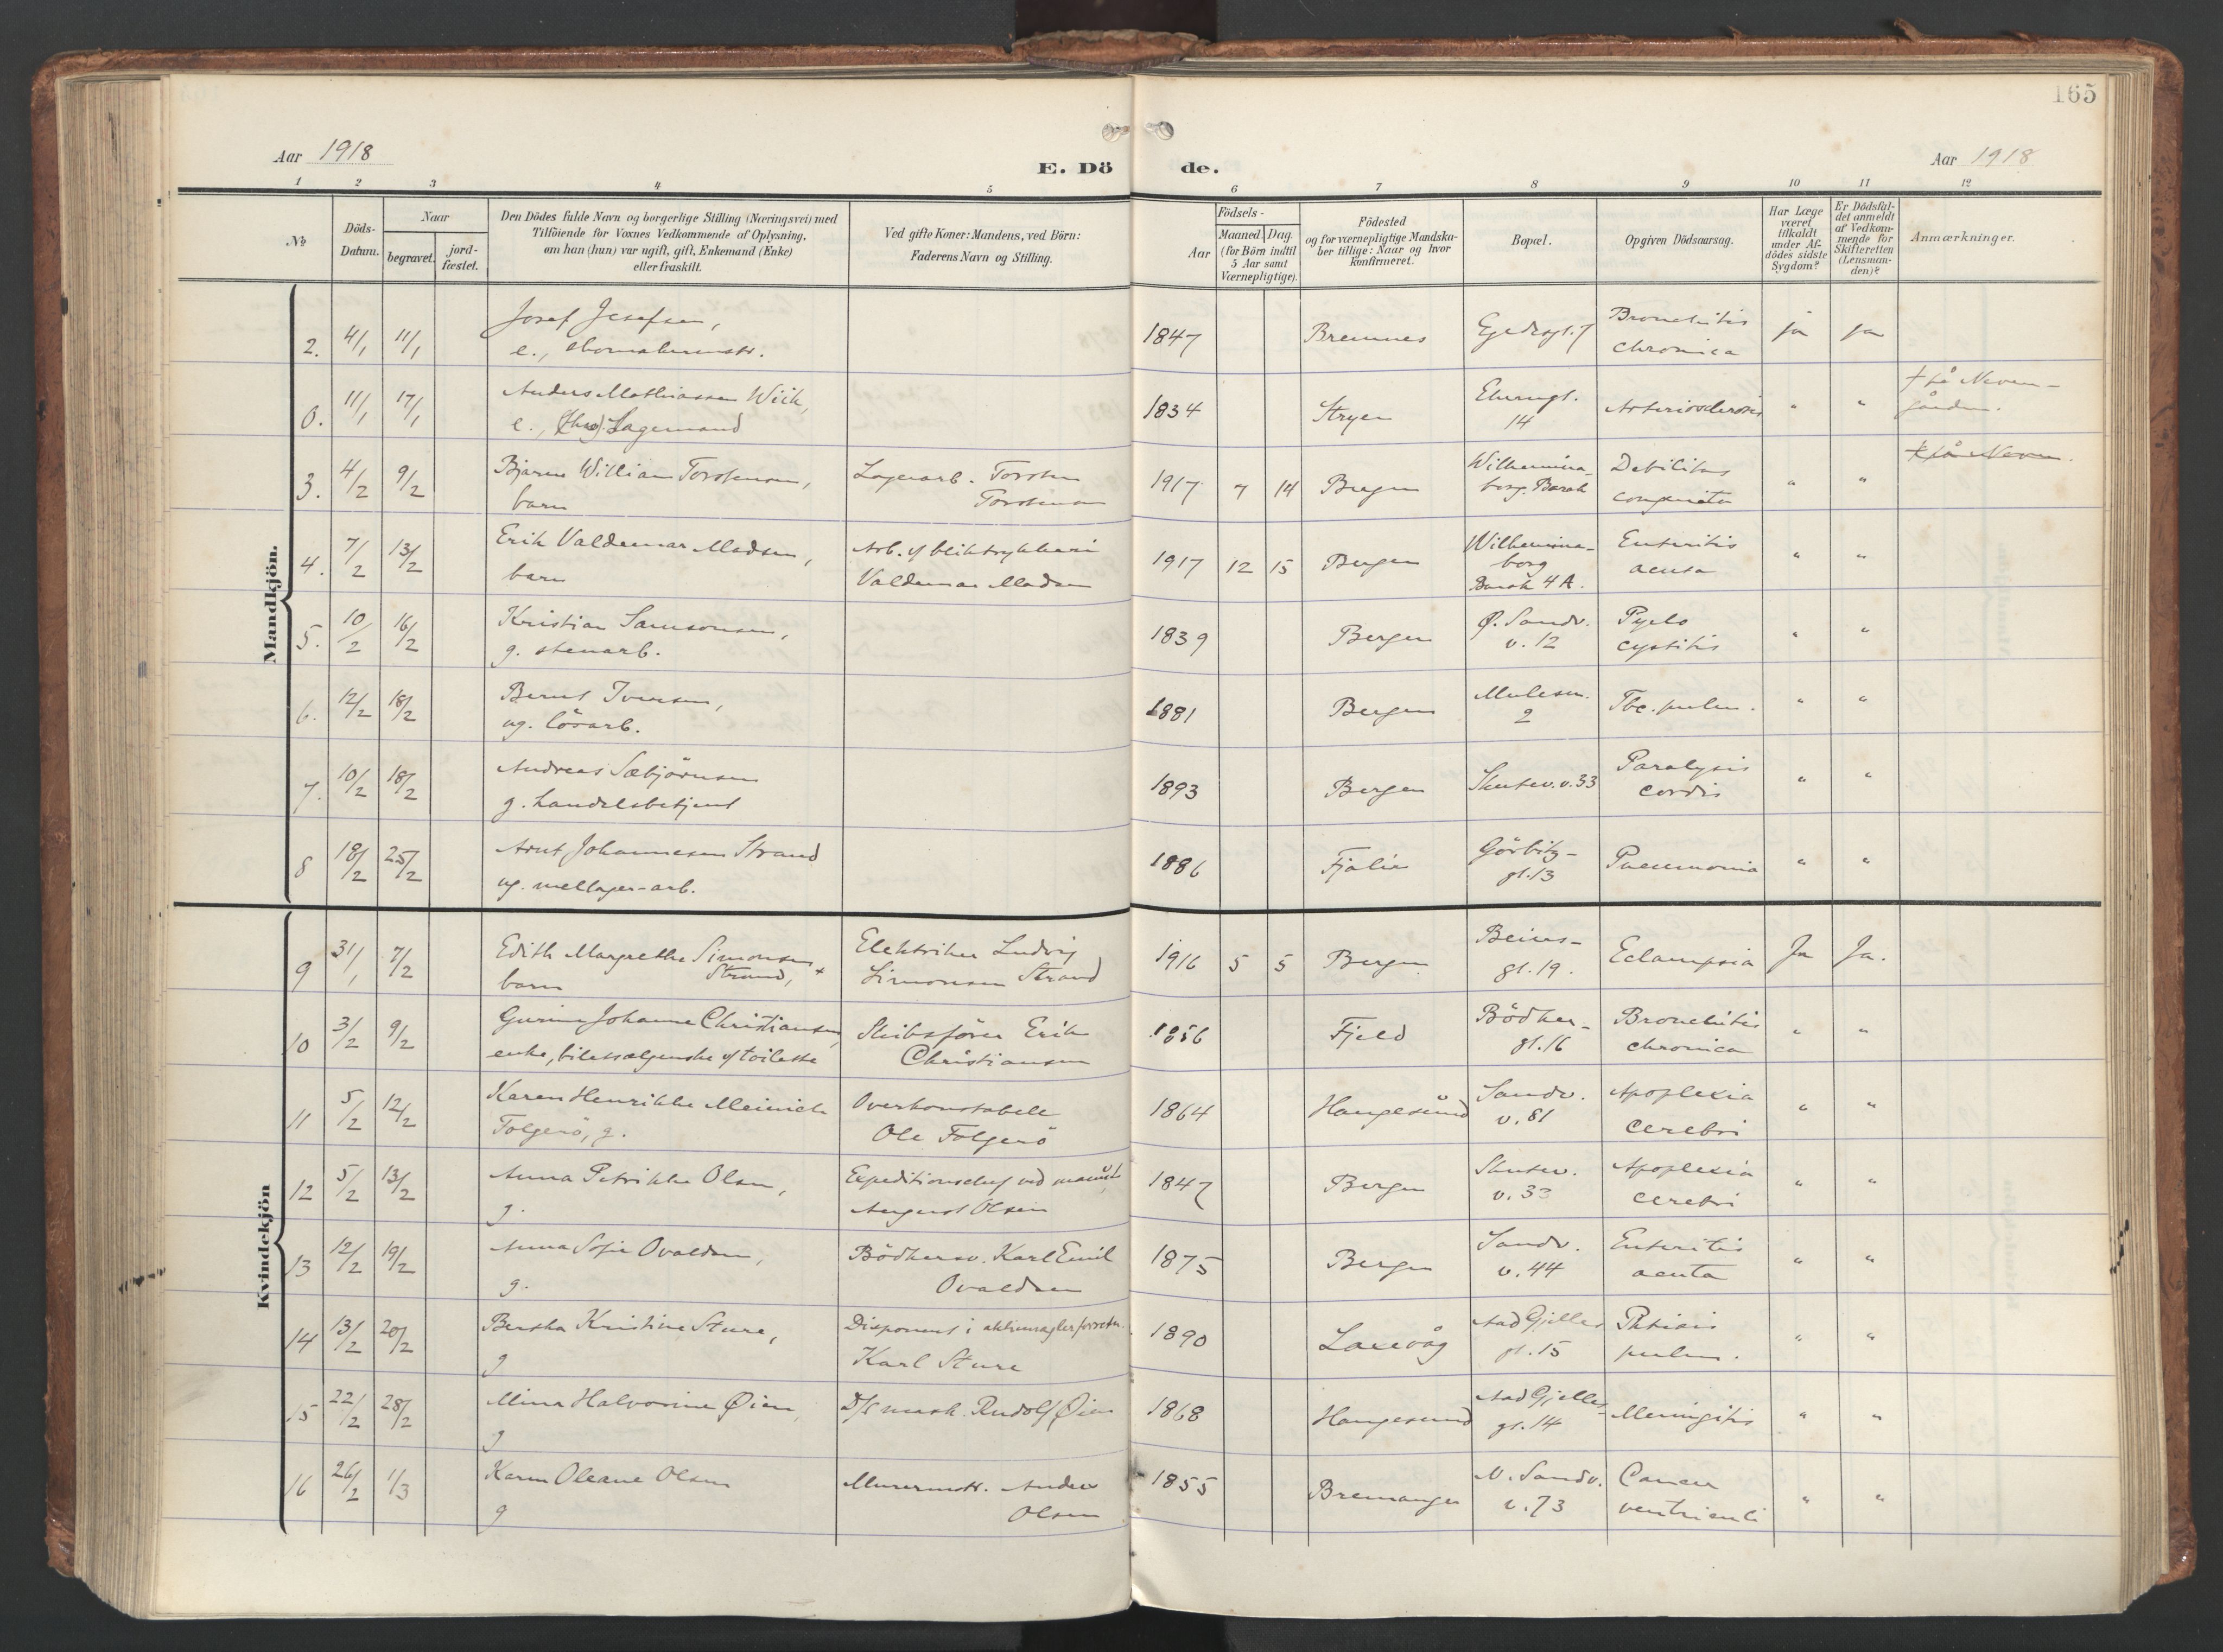 165
Aar 1918
E. Dö
de.
Aar 1918
1 2 3 4 5 6 7 8 9 10 11 12
№
Döds-
Datum.
Naar
begravet.
jord-
fæstet.
Den Dödes fulde Navn og borgerlige Stilling (Næringsvei) med
Tilföiende for Voxnes Vedkommende af Oplysning,
om han (hun) var ugift, gift, Enkemand (Enke)
eller fraskilt.
Ved gifte Koner: Mandens, ved Börn:
Faderens Navn og Stilling.
Födsels-
Aar
Maaned.
Dag.
(for Börn indtil
5 Aar samt
Værnepligtige).
Födested
og for værnepligtige Mandska-
ber tillige: Naar og hvor
konfirmeret.
Bopæl.
Opgiven Dödsaarsag.
Har Læge
været
tilkaldt
under Af-
dödes sidste
Sygdom?
Er Dödsfal-
det anmeldt
af Vedkom-
mende for
Skifteretten
(Lensman-
den)?
Anmærkninger.
Mandkjön.
2. 4/1 11/1 Josef Josefsen, 1847 Bremnes Bronchitis ja ja
e., chronica
0. 11/1 17/1 Anders Mathiassen Wiik, 1834 Stryen 14 Arteriosclerosis " " † på Neven-
e., Lagermand gården.
3. 4/2 9/2 Bjarne William Torstensen, Lagerarb. Torsten 1917 7 14 Bergen Wilhelmina- Debilitas " "
barn Torstensen borg. Barak congenita
4. 7/2 13/2 Erik Valdemar Madsen, Arb. v/ bliktrykkeri 1917 12 15 Bergen Wilhelmina- Enteritis " "
barn Valdemar Madsen borg acuta
Barak 4 A.
5. 10/2 16/2 Kristian Samsonsen, 1839 Bergen Ø. Sandv. Pyelo " "
g. stenarb. v. 12 cystitis
6. 12/2 18/2 Bernt Iversen, 1881 Bergen Mulesm. Tbc. pulm. " "
ug. lösarb. 2
7. 10/2 18/2 Andreas Sæbjörnsen 1893 Bergen Skutev. v. 33 Paralysis " "
g. handelsbetjent cordis
8 18/2 25/2 Arnt Johannesen Strand 1886 Fjaler Görbitz- Pneumonia " "
ug. mellager-arb. gt. 13
Kvindekjön
9 31/1 7/2 Edith Margrethe Simonsen Elektriker Ludvig 1916 5 5 Bergen Gt. 19. Eclampsia Ja Ja.
barn Strand, Simonsen Strand
10 3/2 9/2 Gurine Johanne Christiansen, Skibsförer Erik 1856 Fjeld Bödker- Bronchitis " "
enke, billetsælgerske v/ toilette Christiansen gt. 16 chronica
11 5/2 12/2 Karen Henrikke Meinich Overkonstabel 1864 Haugesund Sandv. Apoplexia " "
Folgerö, g. Ole Folgerö v. 81 cerebri
12 5/2 13/2 Anna Petrikke Olsen, 1847 Bergen Skutev. Apoplexia " "
g. August Olsen v. 33 cerebri
13 12/2 19/2 Anna Sofie Ovaldsen, Bödkersv. Karl Emil 1875 Bergen Sandv. Enteritis " "
g. Ovaldsen v. 44 acuta
14 13/2 20/2 Bertha Kristine Sture, Disponent i 1890 Laxevåg Aad Gjelles Phtisis " "
g Karl Sture gt. 15 pulm.
15 22/2 28/2 Mina Halvorine Øien, D/s mask. Rudolf Øien 1868 Haugesund Aad Gjelles Meningitis " "
g gt. 14
16 26/2 1/3 Karen Oleane Olsen Murermstr. Anders 1855 Bremanger N. Sandv. Cancer " "
g Olsen v. 73 ventriculi